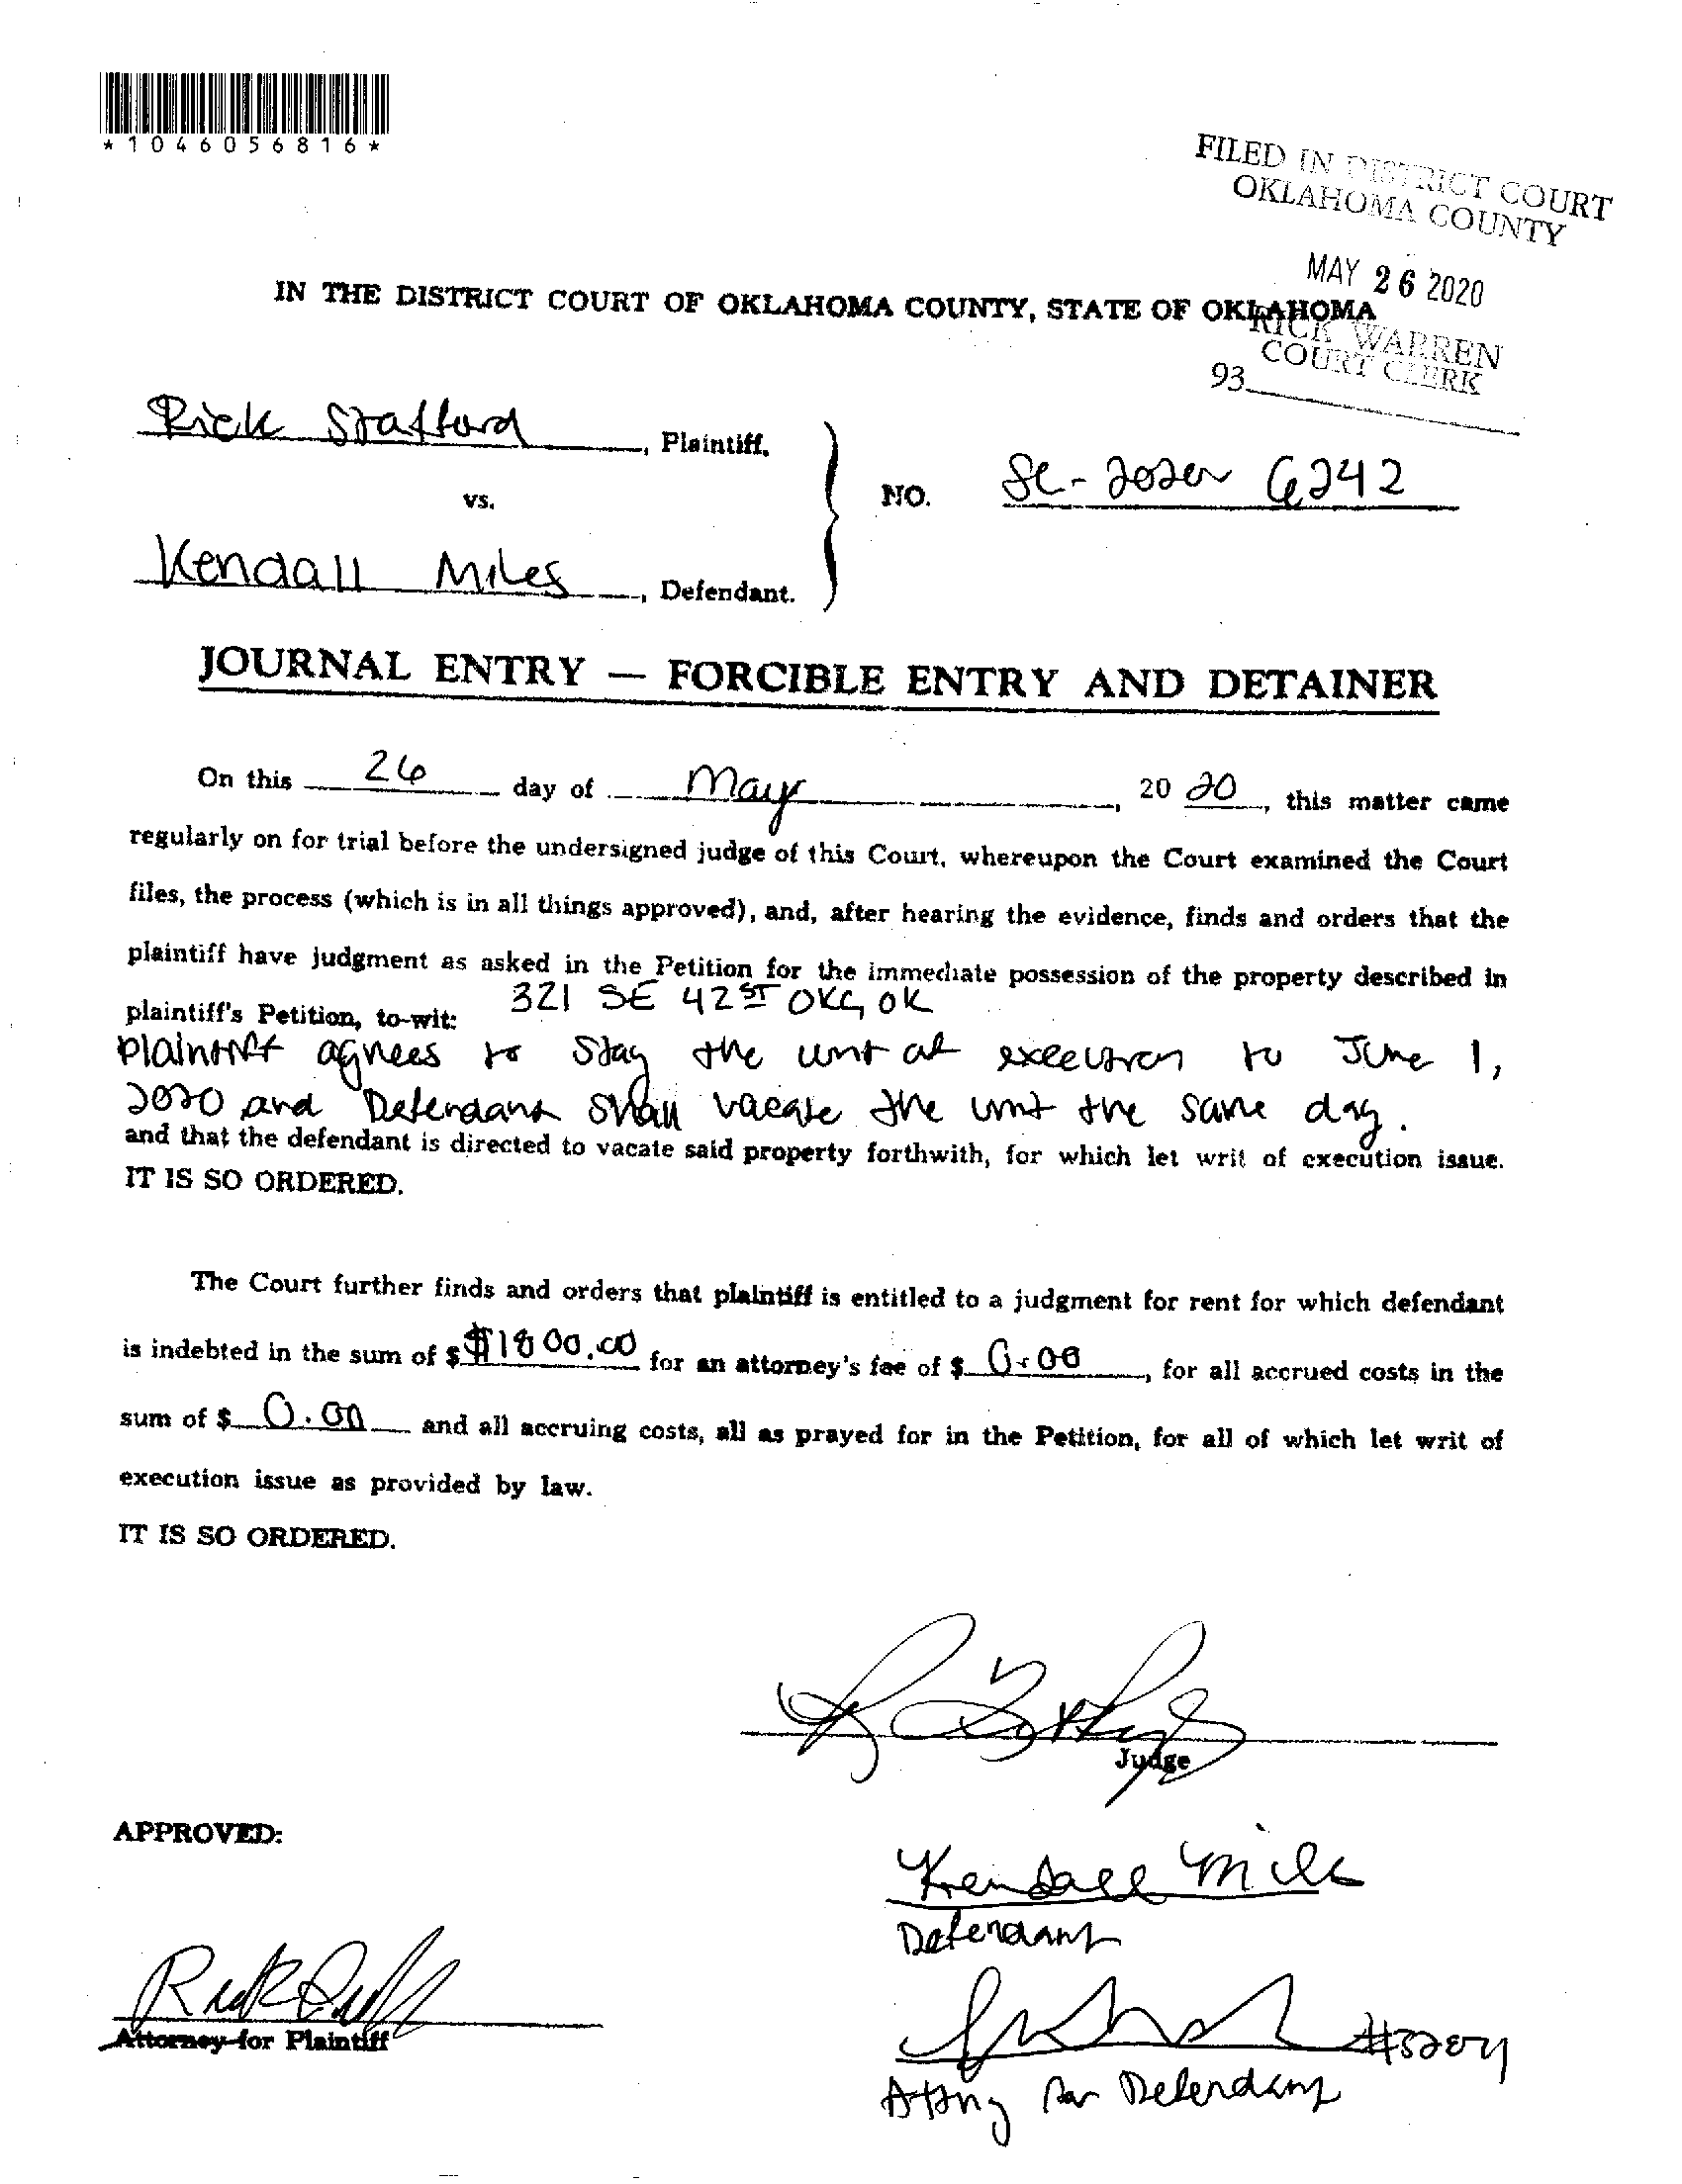 *1046056816*
FILED IN DISTRICT COURT
OKLAHOMA COUNTY
MAY 26 2020
RICK WARREN
COURT CLERK
93
IN THE DISTRICT COURT OF OKLAHOMA COUNTY, STATE OF OKLAHOMA
Rick Stafford, Plaintiff,
vs.
NO. SC-2020 6242
Kendall Miles, Defendant.
JOURNAL ENTRY — FORCIBLE ENTRY AND DETAINER
On this 26 day of May, 20 20, this matter came
regularly on for trial before the undersigned judge of this Court, whereupon the Court examined the Court
files, the process (which is in all things approved), and, after hearing the evidence, finds and orders that the
plaintiff have judgment as asked in the Petition for the immediate possession of the property described in
plaintiff's Petition, to-wit: 321 SE 42 ST OKC, OK
Plaintiff agrees to stay the writ of execution to June 1,
2020 and Defendant shall vacate the unit the same day.
and that the defendant is directed to vacate said property forthwith, for which let writ of execution issue.
IT IS SO ORDERED.
The Court further finds and orders that plaintiff is entitled to a judgment for rent for which defendant
is indebted in the sum of $ $1800.00 for an attorney's fee of $ 0.00, for all accrued costs in the
sum of $ 0.00 and all accruing costs, all as prayed for in the Petition, for all of which let writ of
execution issue as provided by law.
IT IS SO ORDERED.
Judge
APPROVED:
Kendall Miles
Defendant
Attorney for Plaintiff
Attny for Defendant